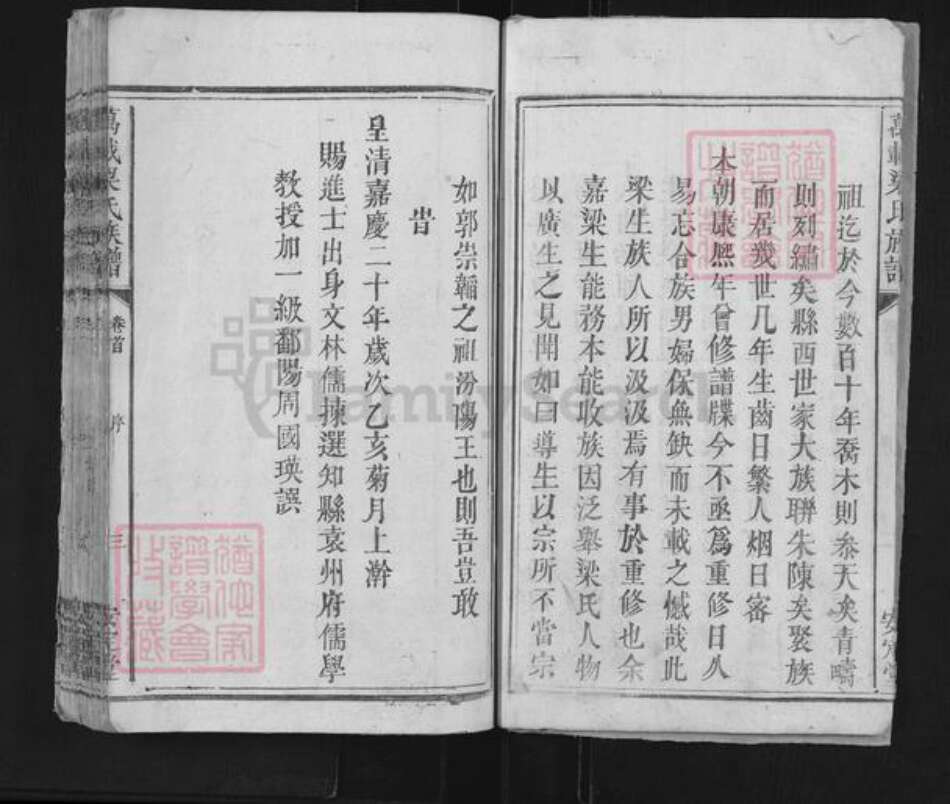 萬載梁氏族譜
安定堂
祖迄於今數百十年喬木則叅天矣青疇
則列繡矣縣西世家大族聯朱陳矣聚族
而居幾世几年生齒日繁人烟日密
本朝康熙年曾修譜牒今不亟爲重修日久
易忘合族男婦保無缺而未載之憾哉此
梁生族人所以汲汲焉有事於重修也余
嘉梁生能務本能收族因泛舉梁氏人物
以廣生之見聞如曰導生以宗所不當宗
如郭崇韜之祖汾陽王也則吾豈敢
旹
皇清嘉慶二十年歲次乙亥菊月上澣
賜進士出身文林儒揀選知縣袁州府儒學
教授加一級鄱陽周國瑛譔
萬載梁氏族譜
卷首
序
三
安定堂
FamilySearch
譜學會
收藏